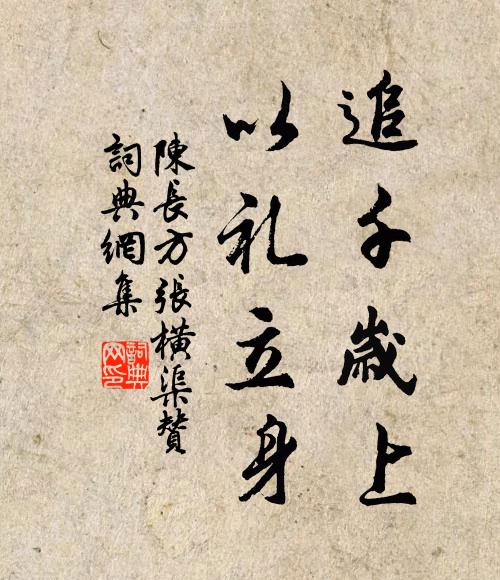 追千歲上
以礼立身
陳長方張橫渠贊
詞典網集
詞典
网印